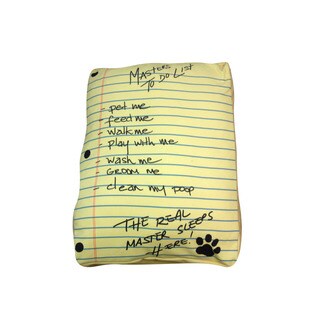 MASTERS
TO DO LIST
- pet me
- feed me
- walk me
- play with me
- wash me
- GROOM me
- clean my poop
THE REAL
MASTER SLEEPS
HERE!